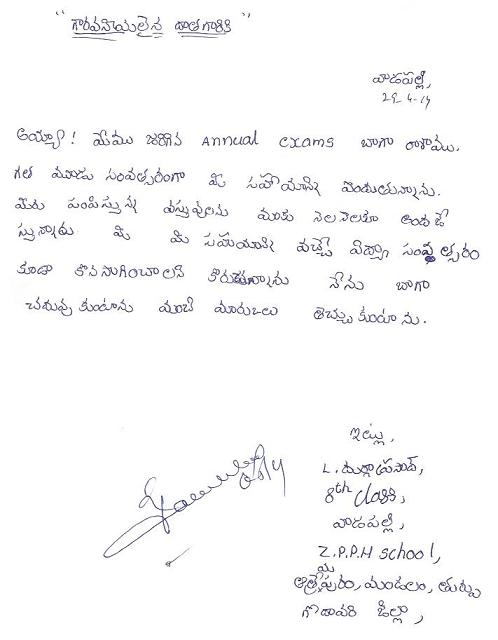 "గౌరవనీయులైన దాతగారికి"
వాడపల్లి,
29-4-14
అయ్యా! మేము జరిగిన Annual exams బాగా రాశాము.
గత మూడు సంవత్సరంగా మీ సహాయాన్ని పొందుతున్నాను.
మీరు పంపిస్తున్న వస్తువులను మాకు నెలనెలకూ అందజే
స్తున్నారు మీ మీ సహాయాన్ని వచ్చే విద్యా సంవత్సరం
కూడా కొనసాగించాలని కోరుతున్నాను నేను బాగా
చదువుకుంటాను మంచి మారుకులు తెచ్చుకుంటాను.
ఇట్లు,
L. దుర్గాప్రసాద్,
8th class,
వాడపల్లి,
Z.P.P.H school,
ఆత్రేయపురం, మండలం, తూర్పు
గోదావరి జిల్లా,